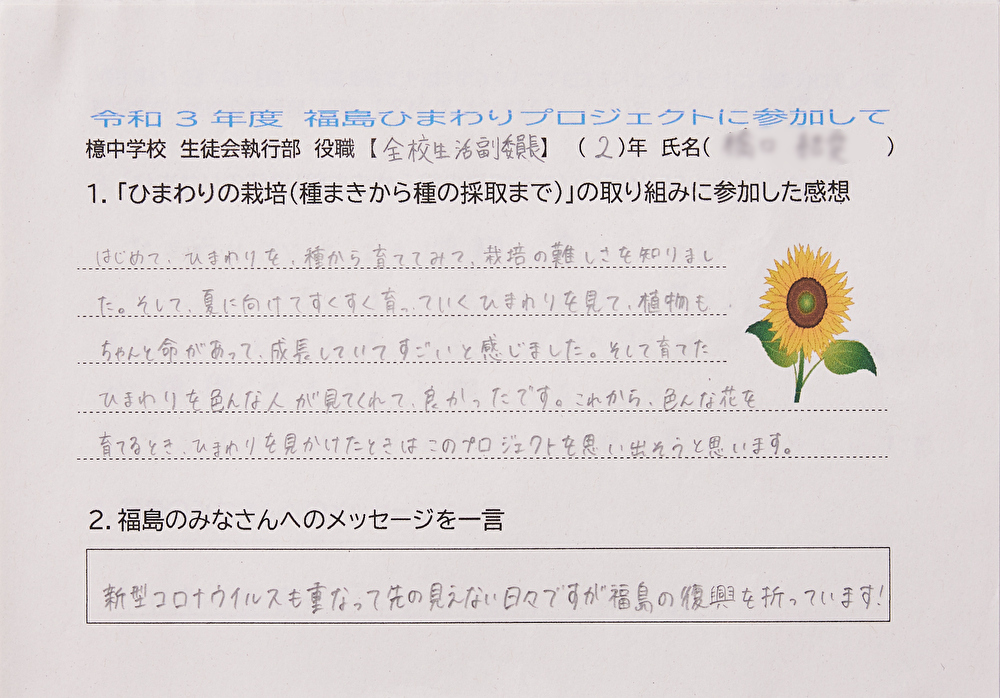 令和 3 年度 福島ひまわりプロジェクトに参加して
檍中学校 生徒会執行部 役職【全校生活副委員長】 (2)年 氏名( )
1.「ひまわりの栽培(種まきから種の採取まで)」の取り組みに参加した感想
はじめて、ひまわりを、種から育ててみて、栽培の難しさを知りまし
た。そして、夏に向けてすくすく育っていくひまわりを見て、植物も
ちゃんと命があって、成長していてすごいと感じました。そして育てた
ひまわりを色んな人が見てくれて、良かったです。これから、色んな花を
育てるとき、ひまわりを見かけたときはこのプロジェクトを思い出そうと思います。
2.福島のみなさんへのメッセージを一言
新型コロナウイルスも重なって先の見えない日々ですが福島の復興を折っています!